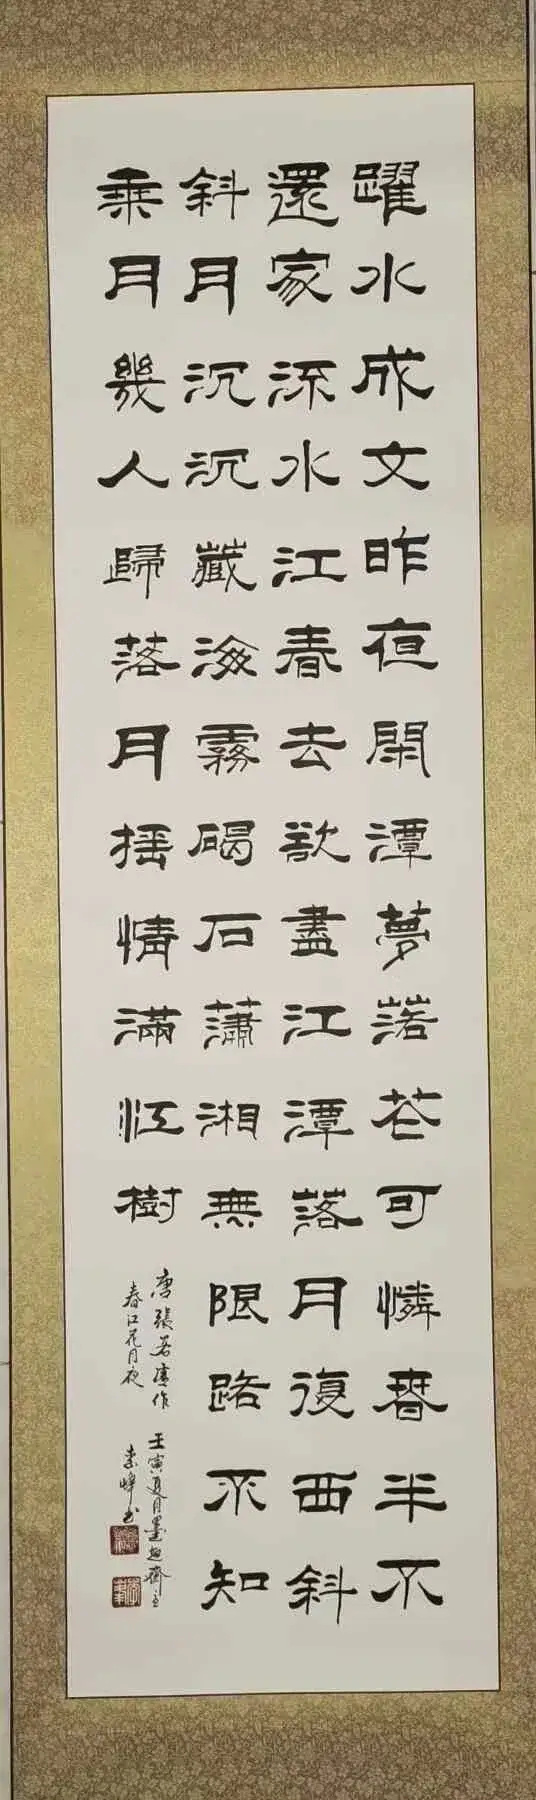 躍水成文昨夜閑潭夢落花可憐春半不
還家流水江春去欲盡江潭落月復西斜
斜月沉沉藏海霧碣石瀟湘無限路不知
乘月幾人歸落月搖情滿江樹
唐張若虛作
春江花月夜
壬寅夏月墨
書